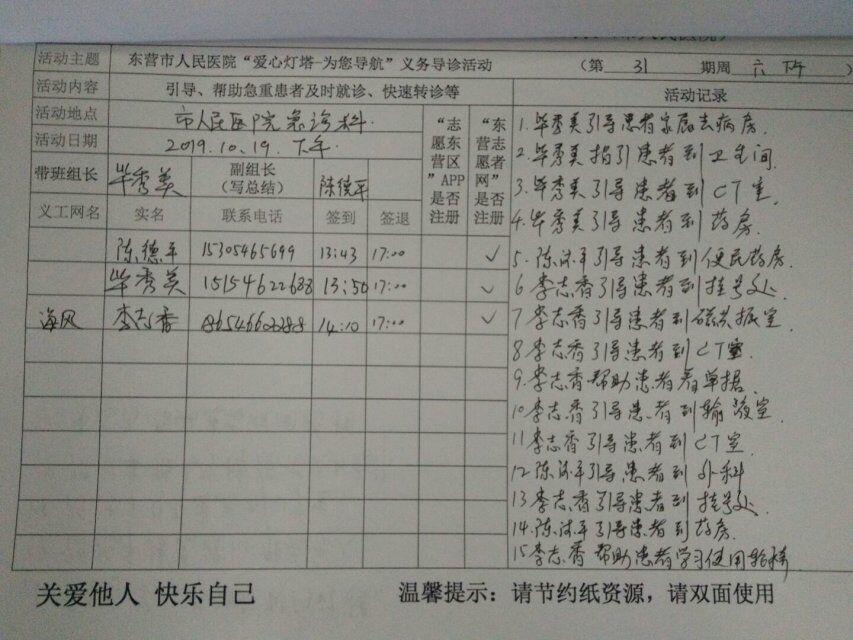 活动主题 东营市人民医院“爱心灯塔-为您导航”义务导诊活动 (第 31 期周 六 下午)
活动内容 引导、帮助急重患者及时就诊、快速转诊等
活动地点 市人民医院急诊科.
活动日期 2019.10.19.下午.
带班组长 毕秀美 副组长(写总结) 陈德平
“志愿东营区”APP是否注册
“东营志愿者网”是否注册
义工网名 实名 联系电话 签到 签退
陈德平 15305465699 13:43 17:00 ✓
毕秀美 15154622688 13:50 17:00 ✓
海风 李志香 14:10 17:00 ✓
活动记录
1.毕秀美引导患者家属去病房.
2.毕秀美指引患者到卫生间
3.毕秀美引导患者到CT室
4.毕秀美引导患者到药房
5.陈德平引导患者到便民药房.
6.李志香引导患者到挂号处.
7.李志香引导患者到磁共振室
8.李志香引导患者到CT室
9.李志香帮助患者看单据.
10.李志香引导患者到输液室
11.李志香引导患者到CT室
12.陈德平引导患者到外科
13.李志香引导患者到挂号处.
14.陈德平引导患者到药房.
15.李志香帮助患者学习使用轮椅
关爱他人 快乐自己
温馨提示：请节约纸资源，请双面使用